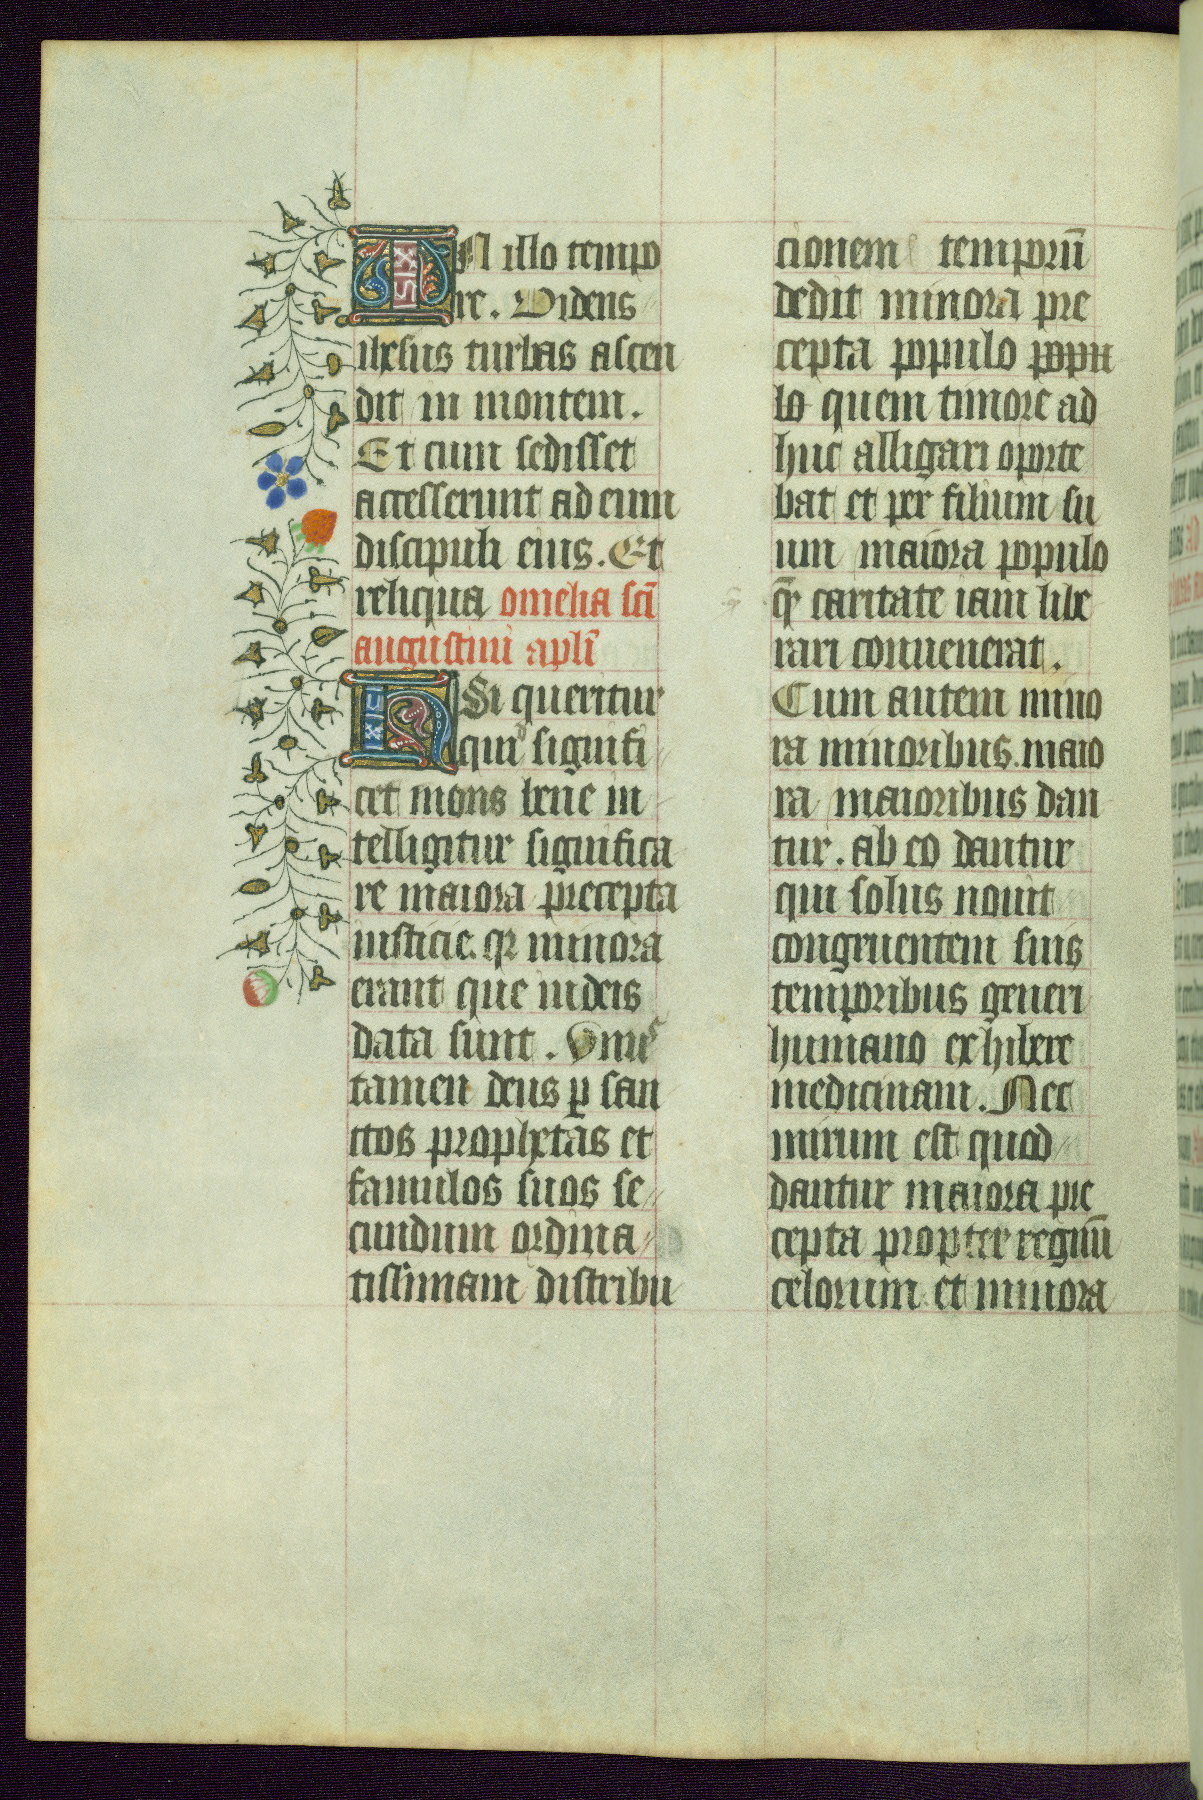 IN illo tempo
re. Videns
ihesus turbas ascen
dit in montem.
Et cum sedisset
accesserunt ad eum
discipuli eius. Et
reliqua omelia scī
augustini apłi
Si queritur
quid signifi
cet mons bene in
telligitur significa
re maiora precepta
iusticie. qr minora
erant que iudeis
data sunt. Unus
tamen deus ꝑ san
ctos prophetas et
famulos suos se
cundum ordina
tissimam distribu
cionem temporū
dedit minora pre
cepta populo popu
lo quem timore ad
huc alligari oporte
bat et per filium su
um maiora populo
q̄ caritate iam libe
rari conuenerat.
Cum autem mino
ra minoribus. maio
ra maioribus dan
tur. ab eo dantur
qui solus nouit
congruentem suis
temporibus generi
humano exhibere
medicinam. Nec
mirum est quod
dantur maiora pre
cepta propter regnū
celorum et minora